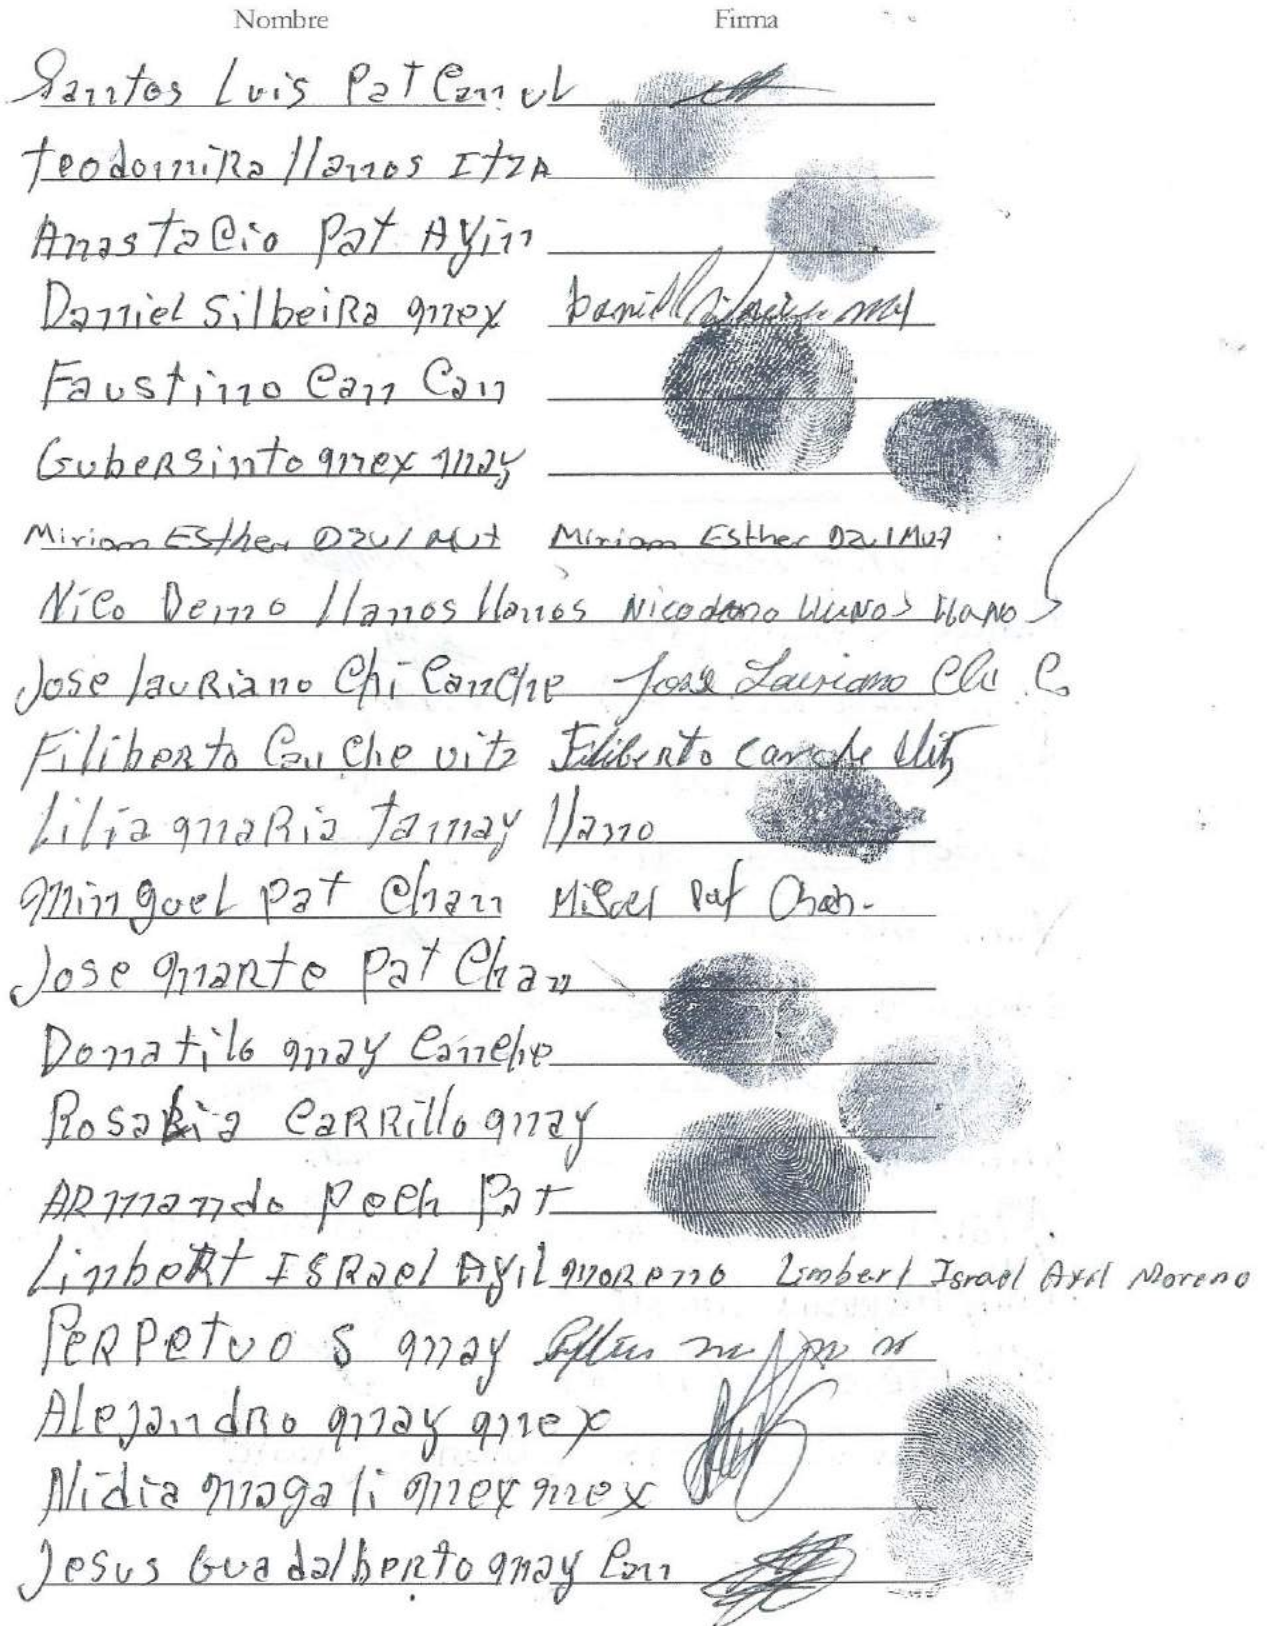 Nombre Firma
Santos Luis Pat Camul
teodomiRa llanos ItzA
Anastacio Pat Ayin
Daniel SilbeiRa mex Daniel
Faustino Can Can
GubeRsinto mex may
Miriam Esther Dzul Mut Miriam Esther Dzul Mut
Nico Demo llanos llanos Nicodemo llaNos llaNos
Jose lauRiano Chi Canche Jose Lauriano Chi C.
Filiberto Can Che vitz Filiberto Canche Uitz
Lilia maRia tamay llamo
Minguel pat Chan Miguel Pat Chan.
Jose maRte Pat Chan
Donatilo may Canche
Rosalia CaRRillo may
ARmando Pech Pat
LimbeRt ISRael Ayil moReno Limbert Israel Ayil Moreno
PeRPetuo S may
AlejandRo may mex
Nidia magali mex mex
Jesus GuadalbeRto may Can